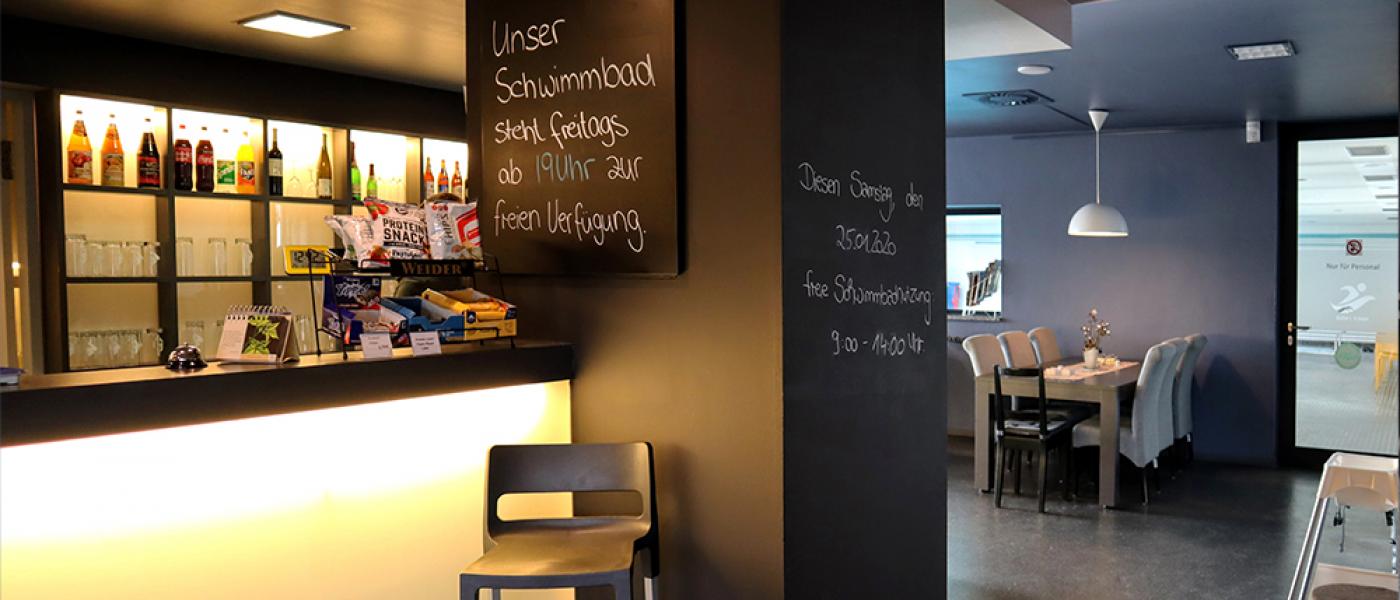 Unser
Schwimmbad
steht freitags
ab 19Uhr zur
freien Verfügung.
Diesen Samstag, den
25.01.2020
freie Schwimmbadnutzung
9:00 - 14:00 Uhr.
PROTEIN
SNACK
WEIDER
Nur für Personal